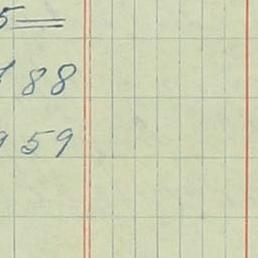 5
88
959